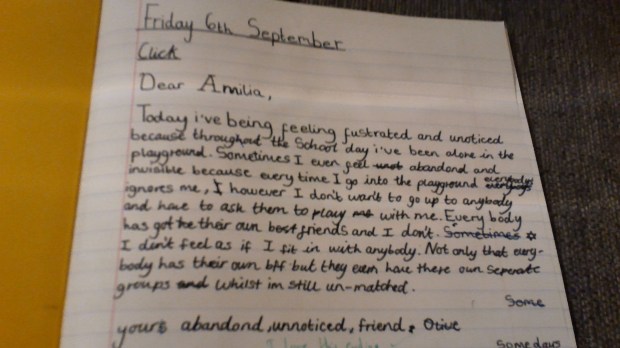 Friday 6th September
Click
Dear Amilia,
Today i've being feeling fustrated and unoticed
because throughout the School day i've been alone in the
playground. Sometimes I even feel abandond and
invisible because every time I go into the playground everybody
ignores me, I however I don't want to go up to anybody
and have to ask them to play with me. Every body
has got their own best friends and I don't. Sometimes
I don't feel as if I fit in with anybody. Not only that every-
body has their own bff but they even have there own seperate
groups and whilst im still un-matched.
Some
yours abandond, unnoticed, friend, Olive
Some days